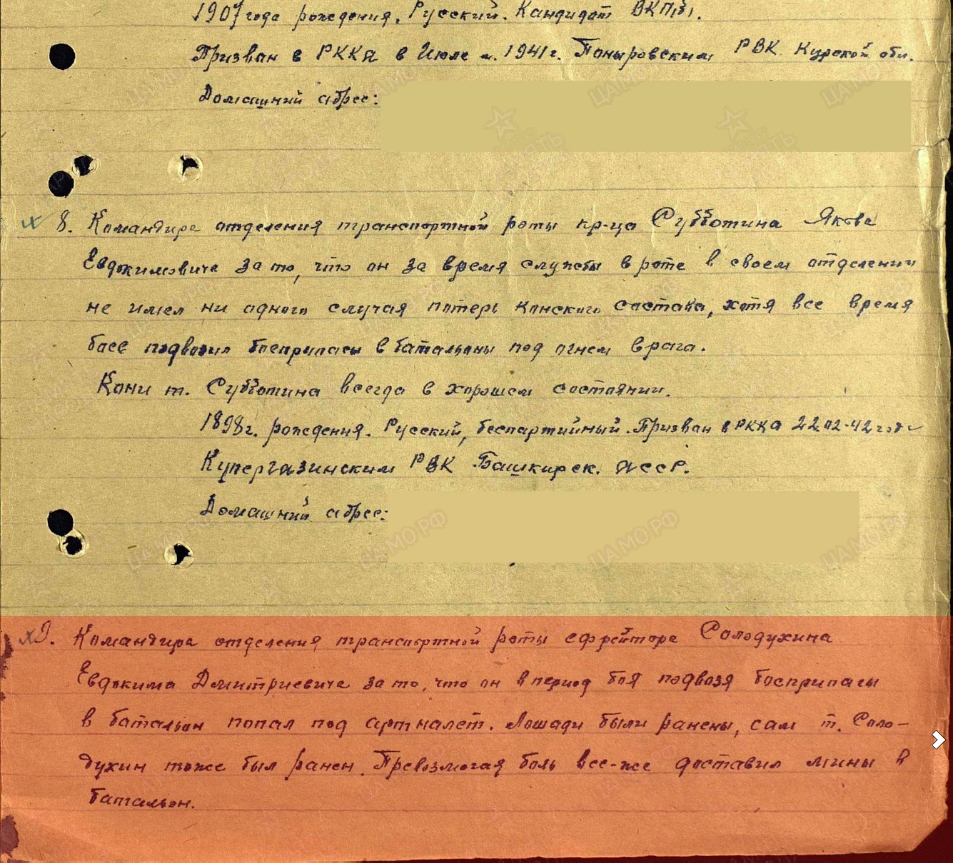 1907 года рождения. Русский. Кандидат ВКП(б).
Призван в РККА в Июле м. 1941 г. Поныровским РВК Курской обл.
Домашний адрес:
х 8. Командира отделения транспортной роты кр-ца Субботина Якова
Евдокимовича за то, что он за время службы в роте в своем отделении
не имел ни одного случая потерь конского состава, хотя все время
боев подвозил боеприпасы в батальоны под огнем врага.
Кони т. Субботина всегда в хорошем состоянии.
1898 г. рождения. Русский, беспартийный. Призван в РККА 22.02.42 года
РВК Башкирск. АССР.
Домашний адрес:
х 9. Командира отделения транспортной роты ефрейтора Солодухина
Евдокима Дмитриевича за то, что он в период боя подвозя боеприпасы
в батальон попал под артналет. Лошади были ранены, сам т. Соло-
духин тоже был ранен. Превозмогая боль все-же доставил мины в
батальон.